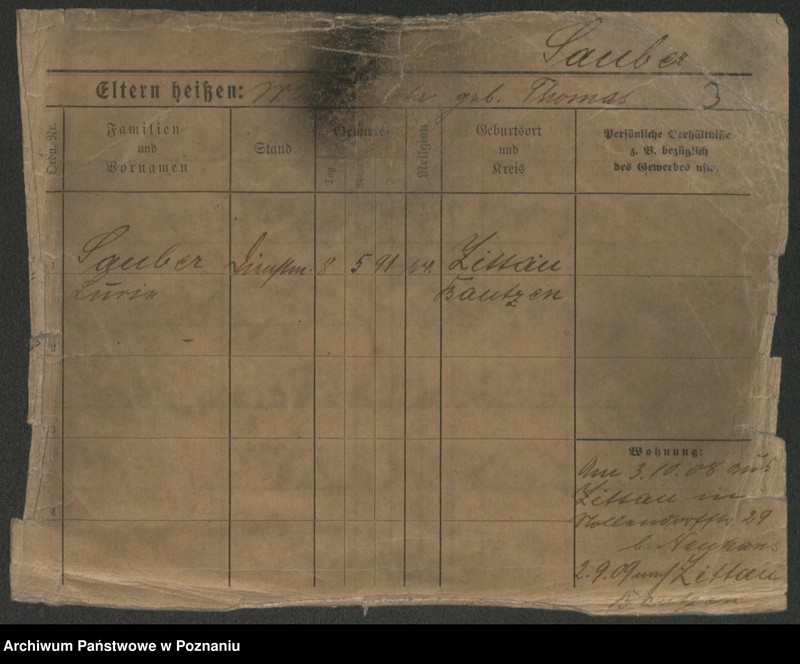 Sauber
Eltern heißen: geb. Thomas 3
Ordn. Nr.
Familien-
und
Vornamen
Stand
Geburts-
Tag
Religion
Geburtsort
und
Kreis
Persönliche Verhältnisse
z. B. bezüglich
des Gewerbes usw.
Sauber 8 5 91 Zittau
Bautzen
2
3
4
Wohnung:
Am 3.10.08 aus
Zittau in
29
b. Neumann
2.9.09 Zittau
Bautzen
Archiwum Państwowe w Poznaniu